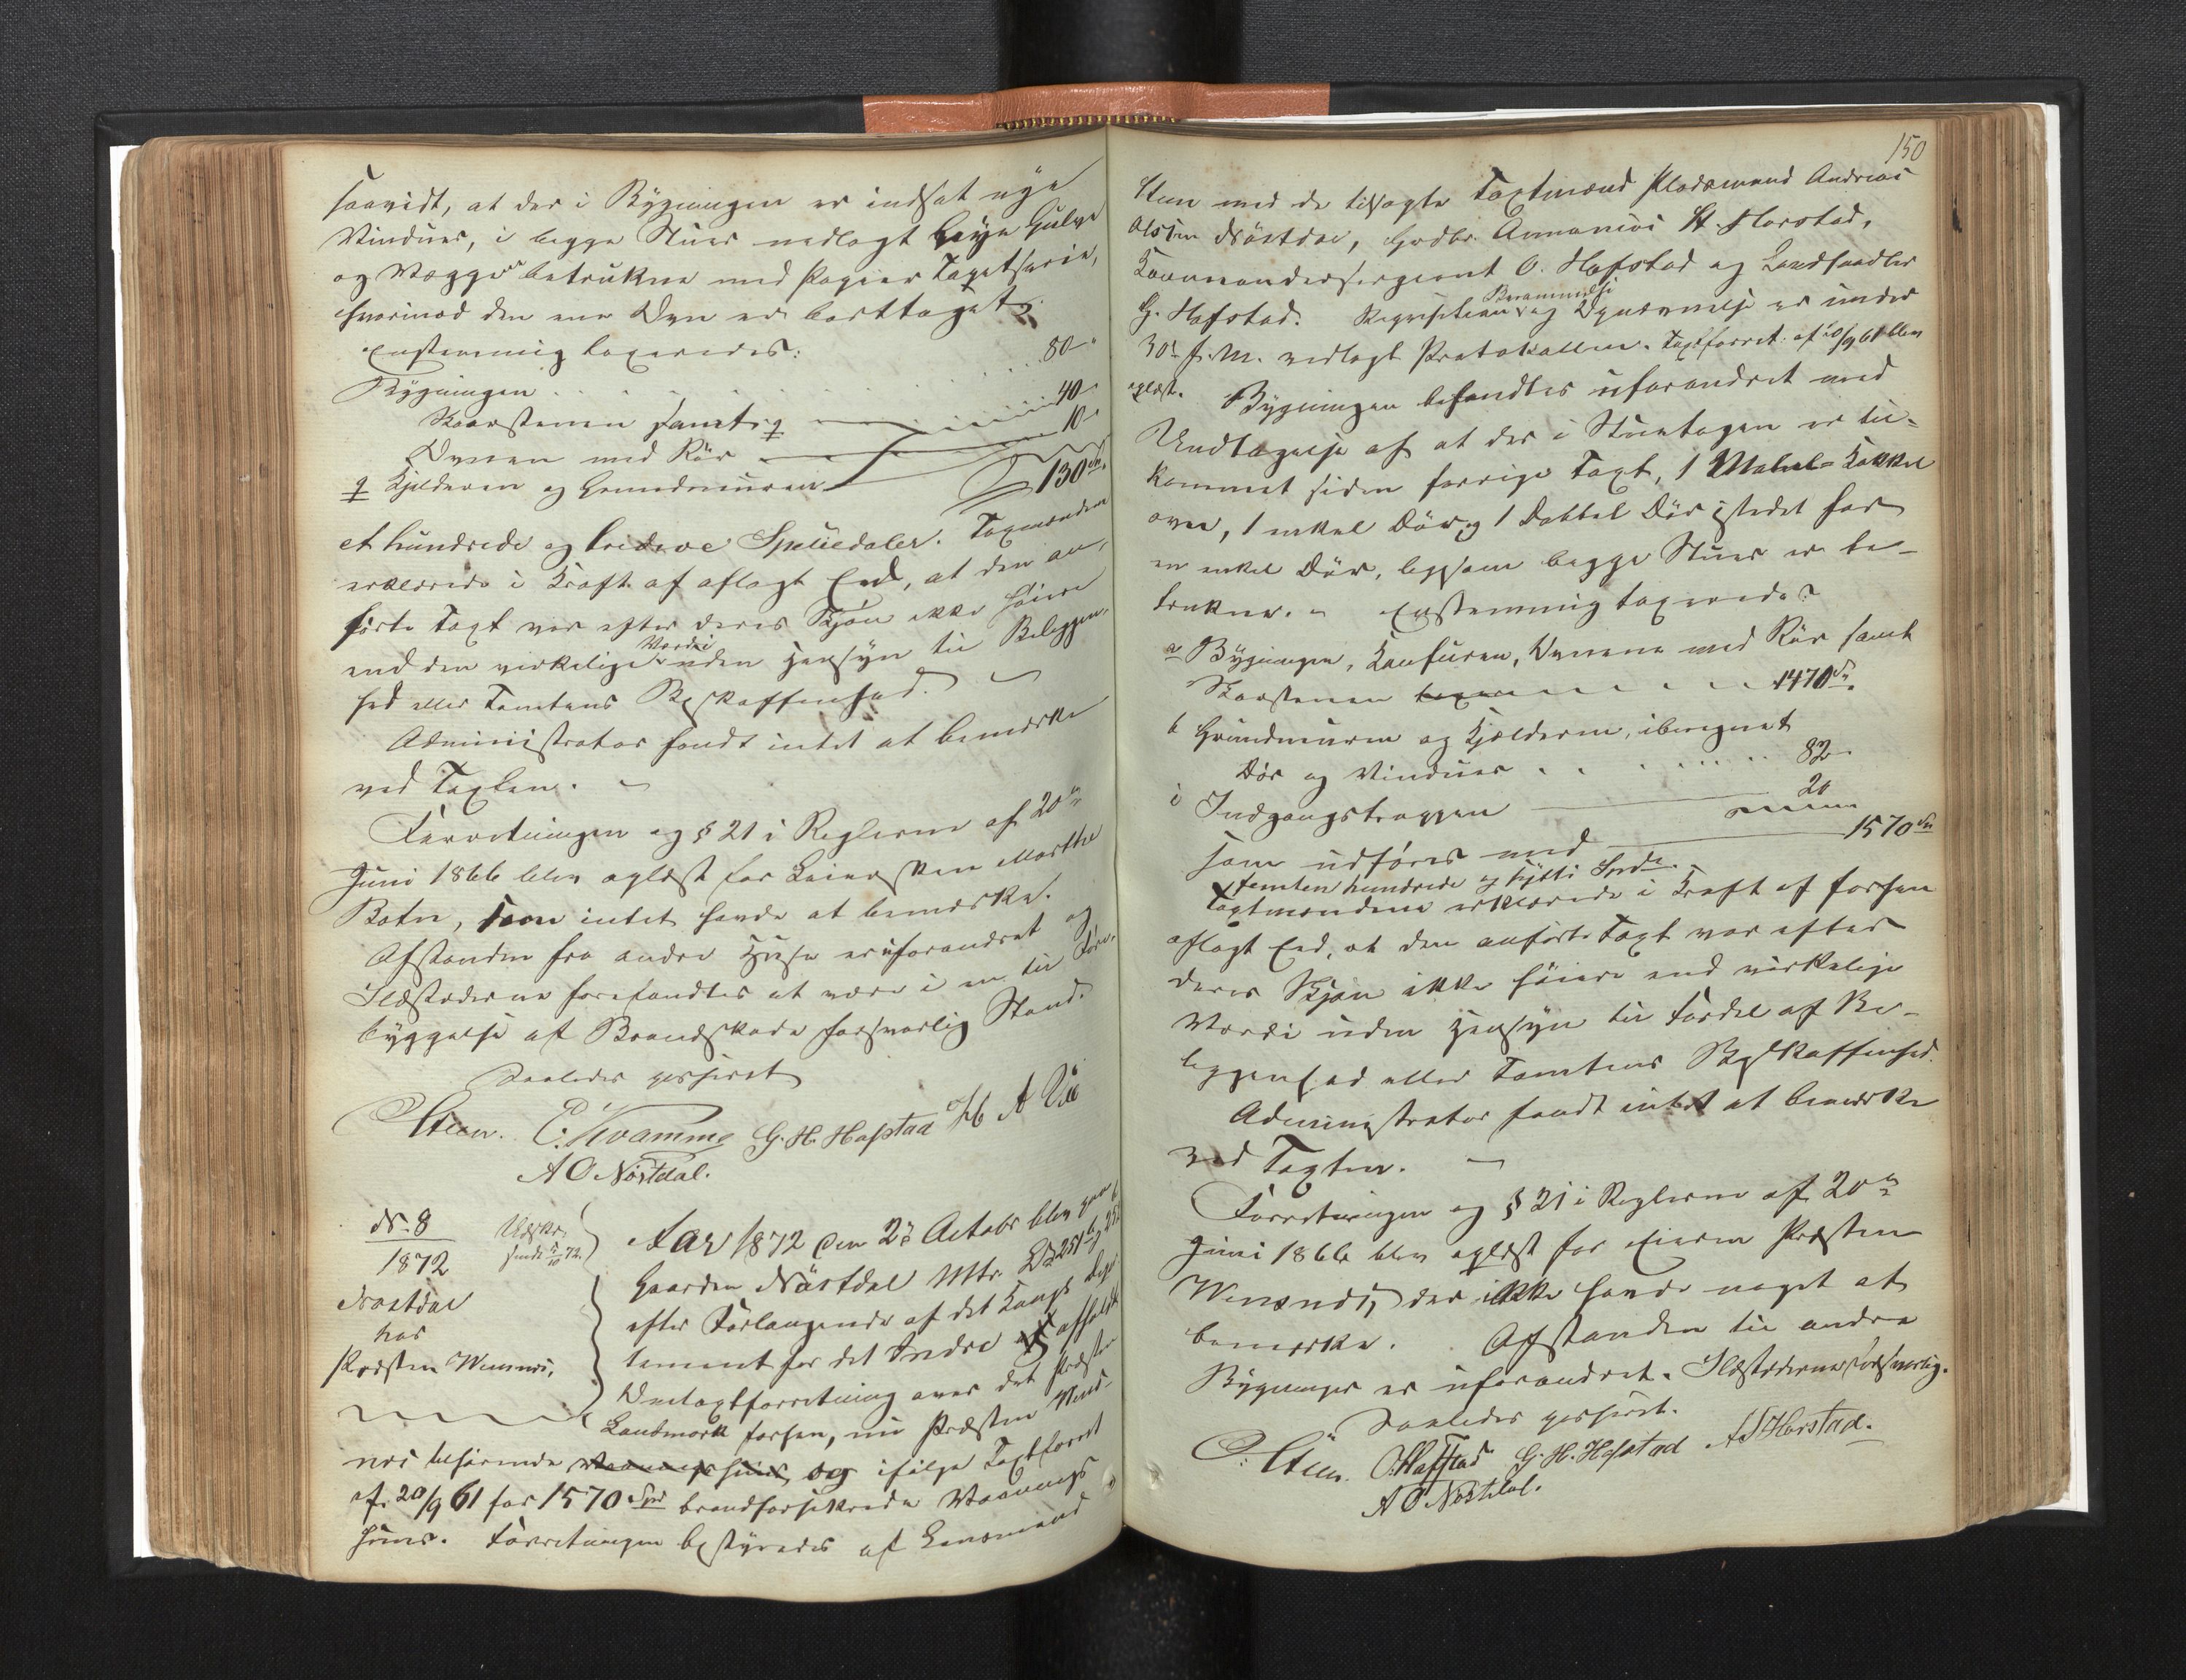 saavidt, at der i Bygningen er indsat nye
Vinduer, i begge Stuer nedlagt nye Gulve
og Vægge betrukne med Papier Tapetserie,
hvorimod den ene Ovn er borttaget.
Enstemmig taxeredes:
Bygningen . . . . . 80 "
Skorstenen samt q 40 "
Ovnen med Rør 10 "
q Kjelderen og Grundmuren
130 Sp.
et hundrede og tredeve Speciedaler. Taxmændene
erklærede i Kraft af aflagt Eed, at den an-
førte Taxt var efter deres Skjøn ikke høiere
end den virkelige Værdi uden Hensyn til Beliggen-
hed eller Tomtens Beskaffenhed. –
Administrator fandt intet at bemærke
ved Taxten. –
Forretningen og § 21 i Reglerne af 20de
Juni 1866 blev oplæst for Eiersken Marthe
Botn, som intet havde at bemærke.
Afstanden fra andre Huse er uforandret og
Ildstederne forefandtes at være i en til Fore-
byggelse af Brandskade forsvarlig Stand.
Saaledes passeret
Steen. E. Kvamme G. H. Hafstad A Vie
A O Nøstdal.
No 8
1872
Nøstdal
hos
Præsten Wennæs,
Udskr.
sendt 5/10 72.
Aar 1872 den 2de Octobr blev paa
Gaarden Nøstdal Mtr. No 251 b og 252
efter Forlangende af det Kongl Depar
tement for det Indre afholdt
Omtaxtforretning over det Præsten
Landmark forhen, nu Præsten Wen-
næs tilhørende Vaaningshuus og ifølge Taxtforret
af 20/9 61 for 1570 Spd brandforsikrede Vaanings
huus. Forretningen bestyredes af Lensmand
150
Steen med de tilsagte Taxtmænd Pladsmand Andreas
Olsen Nøstdal, Gbr. Annanias St. Horstad,
Commandersergeant O. Hafstad og Landhandler
G. Hafstad. Reqvisition Berammelse og Opnævnelse er under
30te f. M. vedlagt Protokollen. Taxtforret. af 20/9 61 blev
oplæst. Bygningen befandtes uforandret med
Undtagelse af at der i Stueetagen er til-
kommet siden forrige Taxt, 1 Kakkel
ovn, 1 enkel Dør og 1 Dobbel Dør istedet for
en enkel Dør, ligesom begge Stuer er be-
trukne. – Enstemmig taxeredes
a Bygningen, Ovnene med Rør samt
Skorstenen 1470 Sp.
b Grundmuren og Kjelderen, iberegnet
Dør og Vinduer . . . . . . 82 –
i Indgangstrappen 20
som udføres med 1570 Sp
femten hundrede og sytti Spd.
Taxtmændene erklærede i Kraft af forhen
aflagt Eed, at den anførte Taxt var efter
deres Skjøn ikke høiere end virkelige
Værdi uden Hensyn til Fordel af Be-
liggenhed eller Tomtens Beskaffenhed.
Administrator fandt intet at bemærke
ved Taxten. –
Forretningen og § 21 i Reglerne af 20de
Juni 1866 blev oplæst for Eieren Præsten
Wennæs, der ikke havde noget at
bemærke. Afstanden til andre
Bygninger er uforandret. Ildstederne forsvarlig.
Saaledes passeret.
Steen. O. Hafstad G. H. Hafstad A S Horstad.
A O Nøstdal.